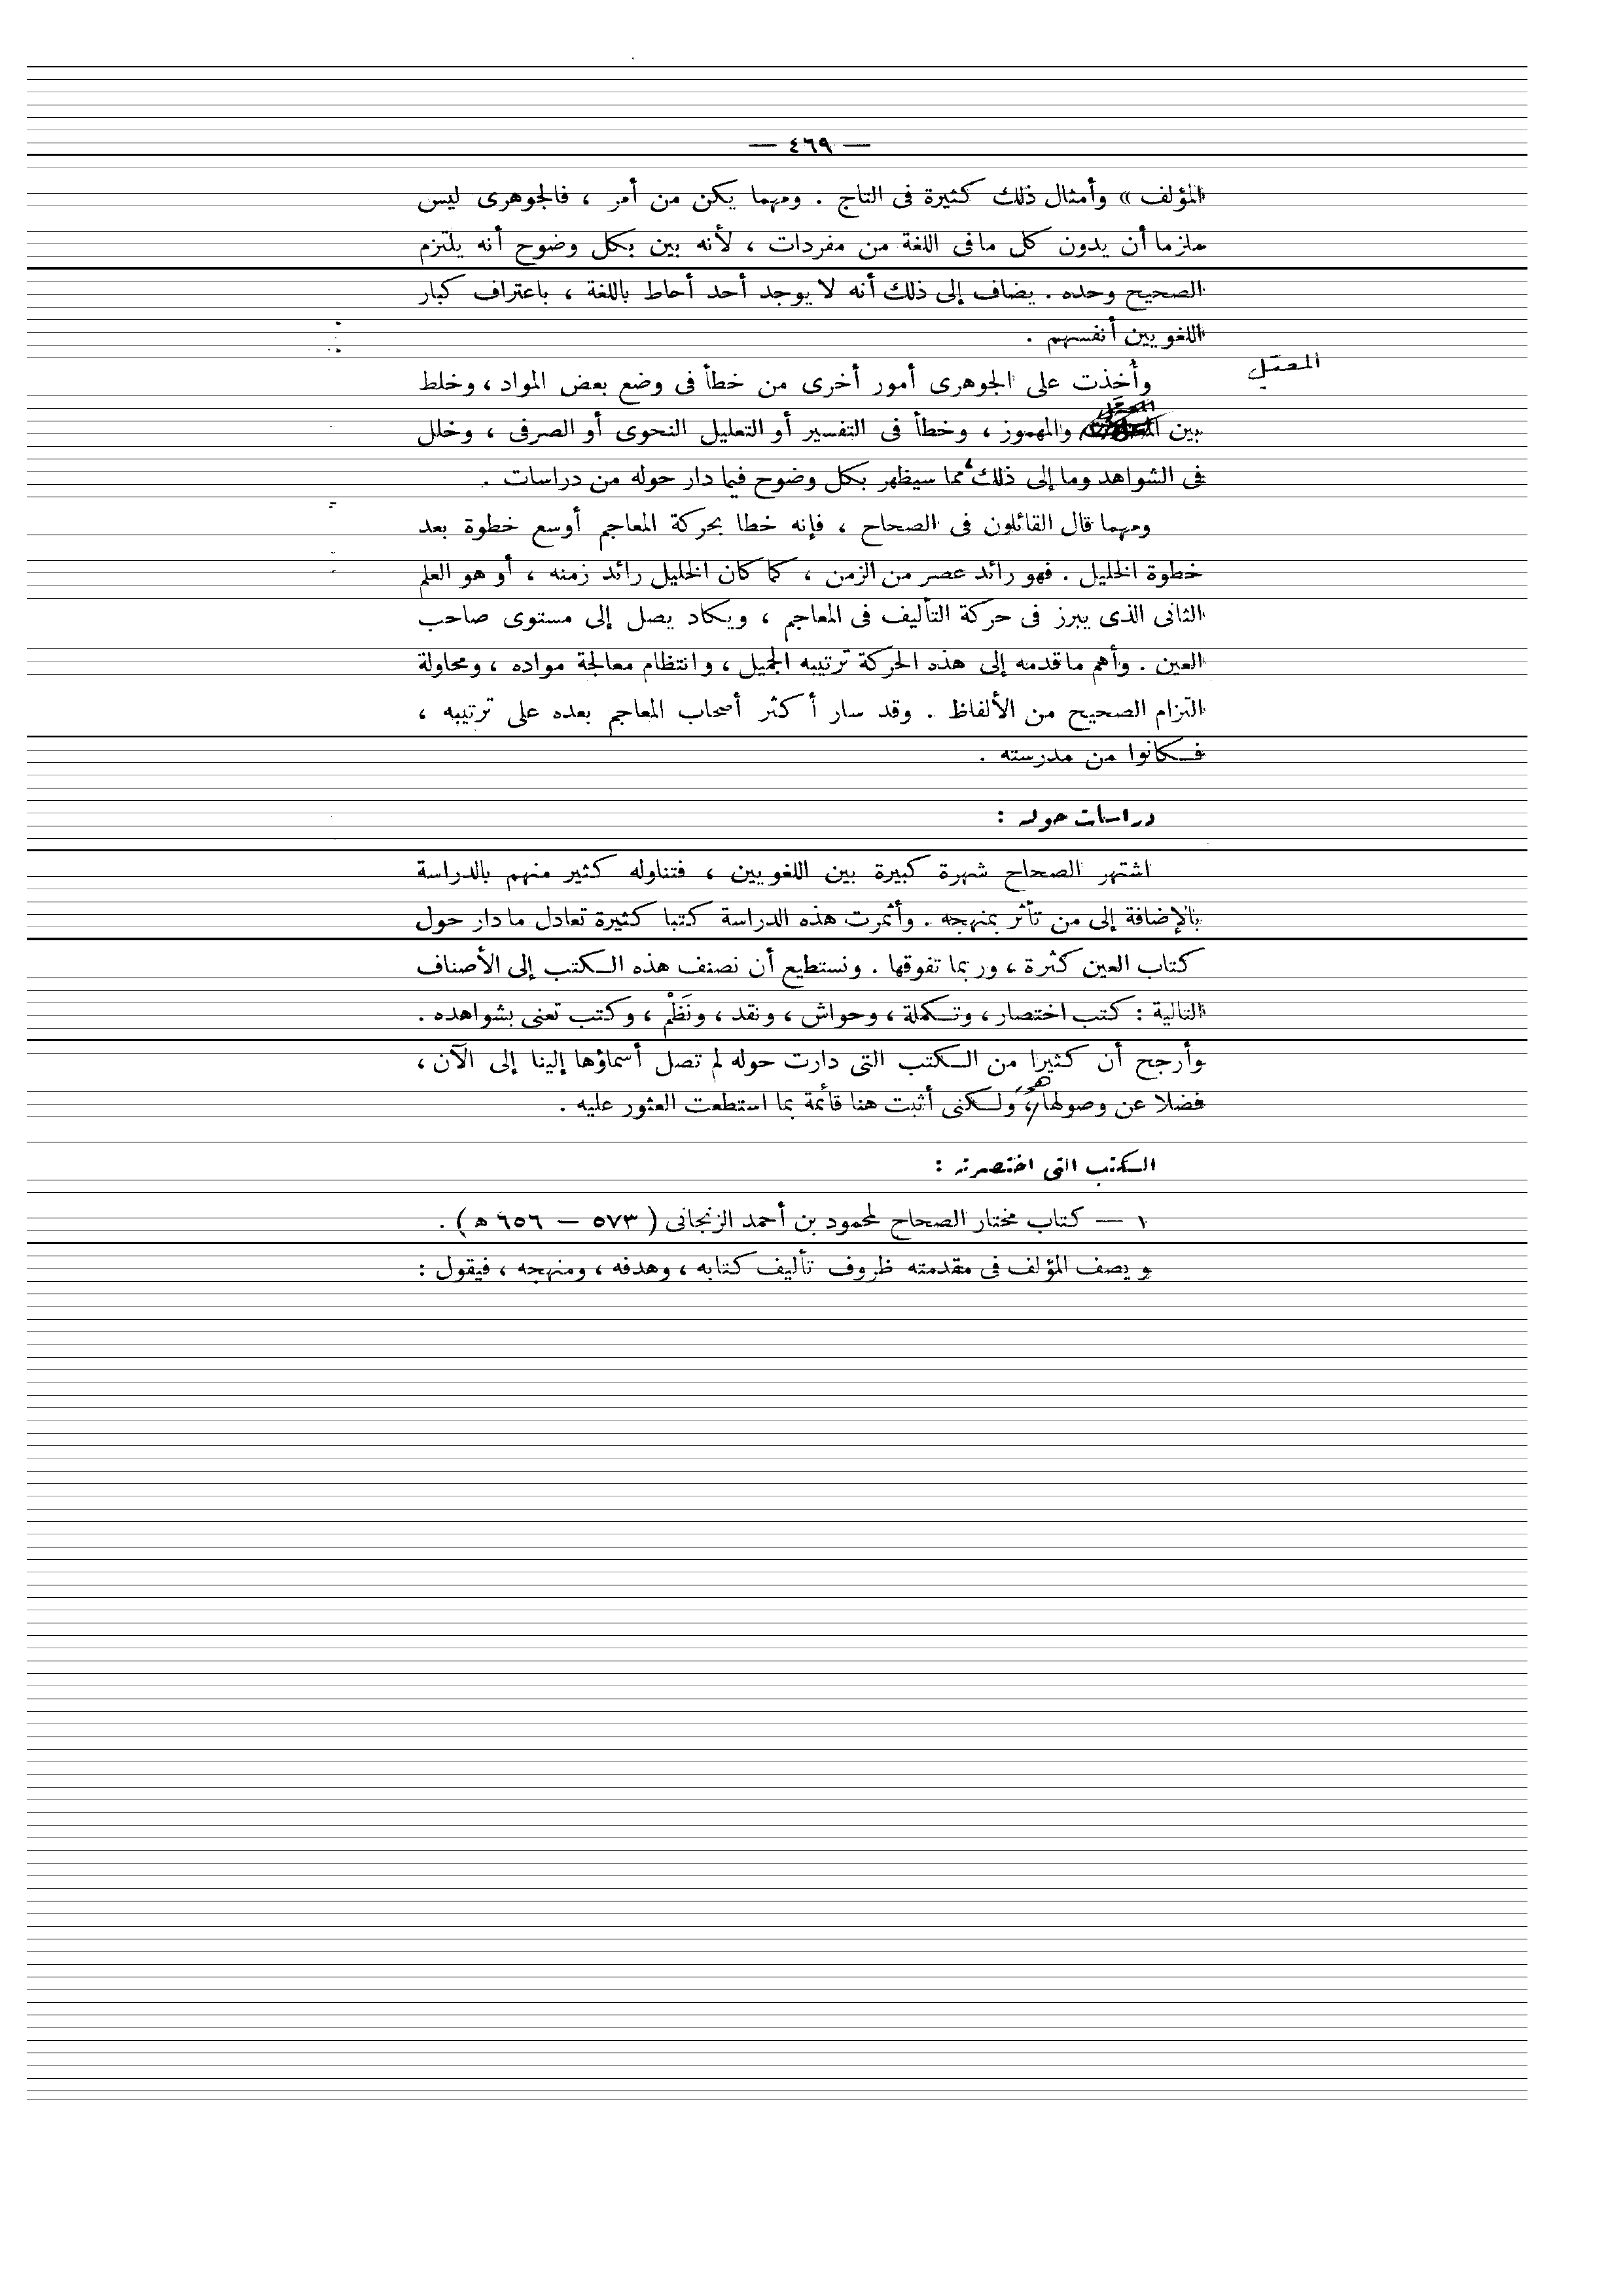 — ٤٦٩ —
المؤلف » وأمثال ذلك كثيرة فى التاج . ومهما يكن من أمر ، فالجوهرى ليس
ملزما أن يدون كل مافى اللغة من مفردات ، لأنه بين بكل وضوح أنه يلتزم
الصحيح وحده . يضاف إلى ذلك أنه لا يوجد أحد أحاط باللغة ، باعتراف كبار
اللغويين أنفسهم .
المعتل
وأُخذت على الجوهرى أمور أخرى من خطأ فى وضع بعض المواد ، وخلط
بين المعتل والمهموز ، وخطأ فى التفسير أو التعليل النحوى أو الصرفى ، وخلل
فى الشواهد وما إلى ذلك ، مما سيظهر بكل وضوح فيما دار حوله من دراسات .
ومهما قال القائلون فى الصحاح ، فإنه خطا بحركة المعاجم أوسع خطوة بعد
خطوة الخليل . فهو رائد عصر من الزمن ، كما كان الخليل رائد زمنه ، أو هو العلم
الثانى الذى يبرز فى حركة التأليف فى المعاجم ، ويكاد يصل إلى مستوى صاحب
العين . وأهم ماقدمه إلى هذه الحركة ترتيبه الجميل ، وانتظام معالجة مواده ، ومحاولة
التزام الصحيح من الألفاظ . وقد سار أكثر أصحاب المعاجم بعده على ترتيبه ،
فكانوا من مدرسته .
دراسات حوله :
اشتهر الصحاح شهرة كبيرة بين اللغويين ، فتناوله كثير منهم بالدراسة
بالإضافة إلى من تأثر بمنهجه . وأثمرت هذه الدراسة كتبا كثيرة تعادل مادار حول
كتاب العين كثرة ، وربما تفوقها . ونستطيع أن نصنف هذه الكتب إلى الأصناف
التالية : كتب اختصار ، وتكملة ، وحواش ، ونقد ، ونَظْم ، وكتب تعنى بشواهده .
وأرجح أن كثيرا من الكتب التى دارت حوله لم تصل أسماؤها إلينا إلى الآن ،
فضلا عن وصولها هى ، ولكنى أثبت هنا قائمة بما استطعت العثور عليه .
الكتب التى اختصرته :
١ — كتاب مختار الصحاح لمحمود بن أحمد الزنجانى ( ٥٧٣ — ٦٥٦ ه ) .
ويصف المؤلف فى مقدمته ظروف تأليف كتابه ، وهدفه ، ومنهجه ، فيقول :